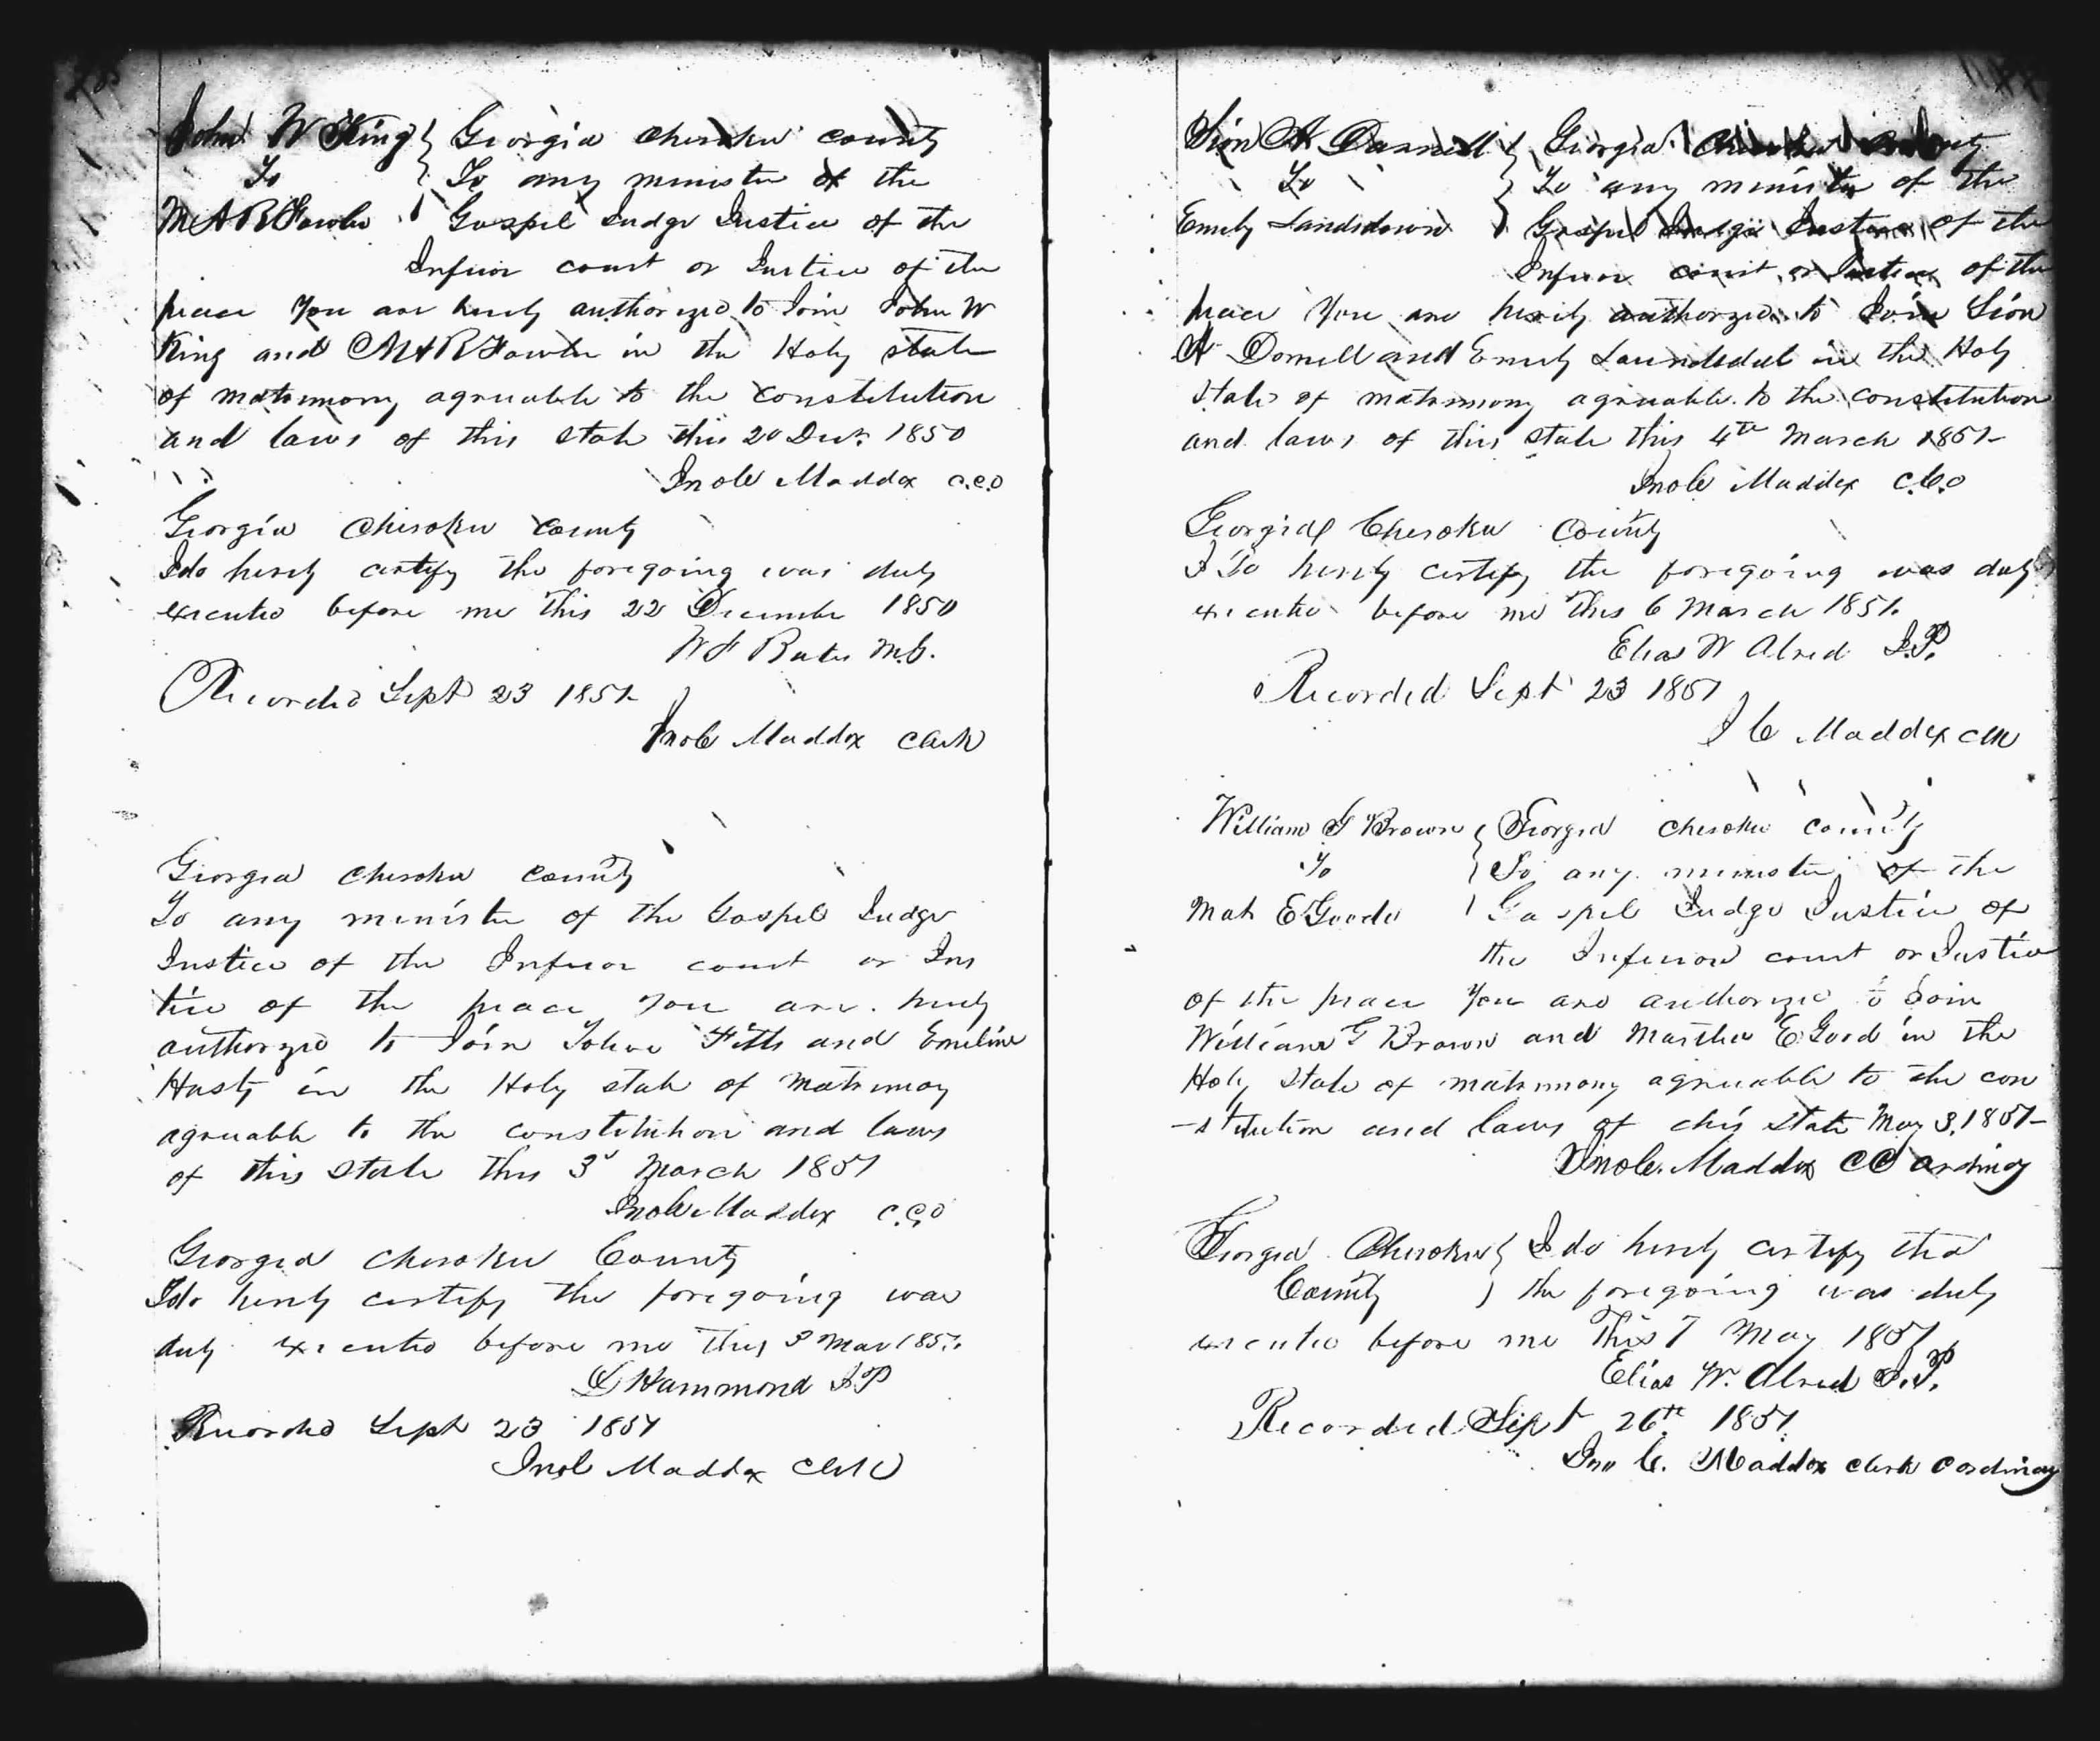 John W King } Georgia Cherokee County
To } To any minister of the
M A R Fowler } Gospel Judge Justice of the
Inferior court or Justice of the
peace You are hereby authorized to Join John W
King and M A R Fowler in the Holy state
of matrimony agreeable to the constitution
and laws of this state this 20 Decr 1850
Jno C Maddox C.C.O
Georgia Cherokee County
I do hereby certify the foregoing was duly
executed before me this 22 December 1850
W F Bates M.G.
Recorded Sept 23 1851
Jno C Maddox Clerk
Georgia Cherokee County
To any minister of the Gospel Judge
Justice of the Inferior court or Jus
tice of the peace you are hereby
authorized to Join Fitts and Emeline
Hasty in the Holy state of matrimony
agreeable to the constitution and laws
of this state this 3d March 1851
Jno C Maddox C.C.O
Georgia Cherokee County
I do hereby certify the foregoing was
duly executed before me this 3 Mar 1851
L Hammond J.P
Recorded Sept 23 1851
Jno C Maddox Clerk
Sion A Darnell } Georgia Cherokee County
To } To any minister of the
Emily Landsdown } Gospel Judge Justice of the
Inferior court or Justice of the
peace You are hereby authorized to Join Sion
A Dornell and Emily in the Holy
state of matrimony agreeable to the constitution
and laws of this state this 4th March 1851
Jno C Maddox C.C.O
Georgia Cherokee County
I do hereby certify the foregoing was duly
executed before me this 6 March 1851
Elias W Alred J.P.
Recorded Sept 23 1851
J C Maddox Clk
William G Brown } Georgia Cherokee County
To } To any minister of the
Mah E Goode } Gospel Judge Justice of
the Inferior court or Justice
of the peace You are authorized to Join
William G Brown and Martha E Good in the
Holy state of matrimony agreeable to the con
-stitution and laws of this state May 3, 1851
Jno C. Maddox CC ordinary
Georgia Cherokee } I do hereby certify that
County } the foregoing was duly
executed before me this 7 May 1851
Elias W. Alred J.P.
Recorded Sept 26th 1851
Jno C. Maddox Clerk C ordinary